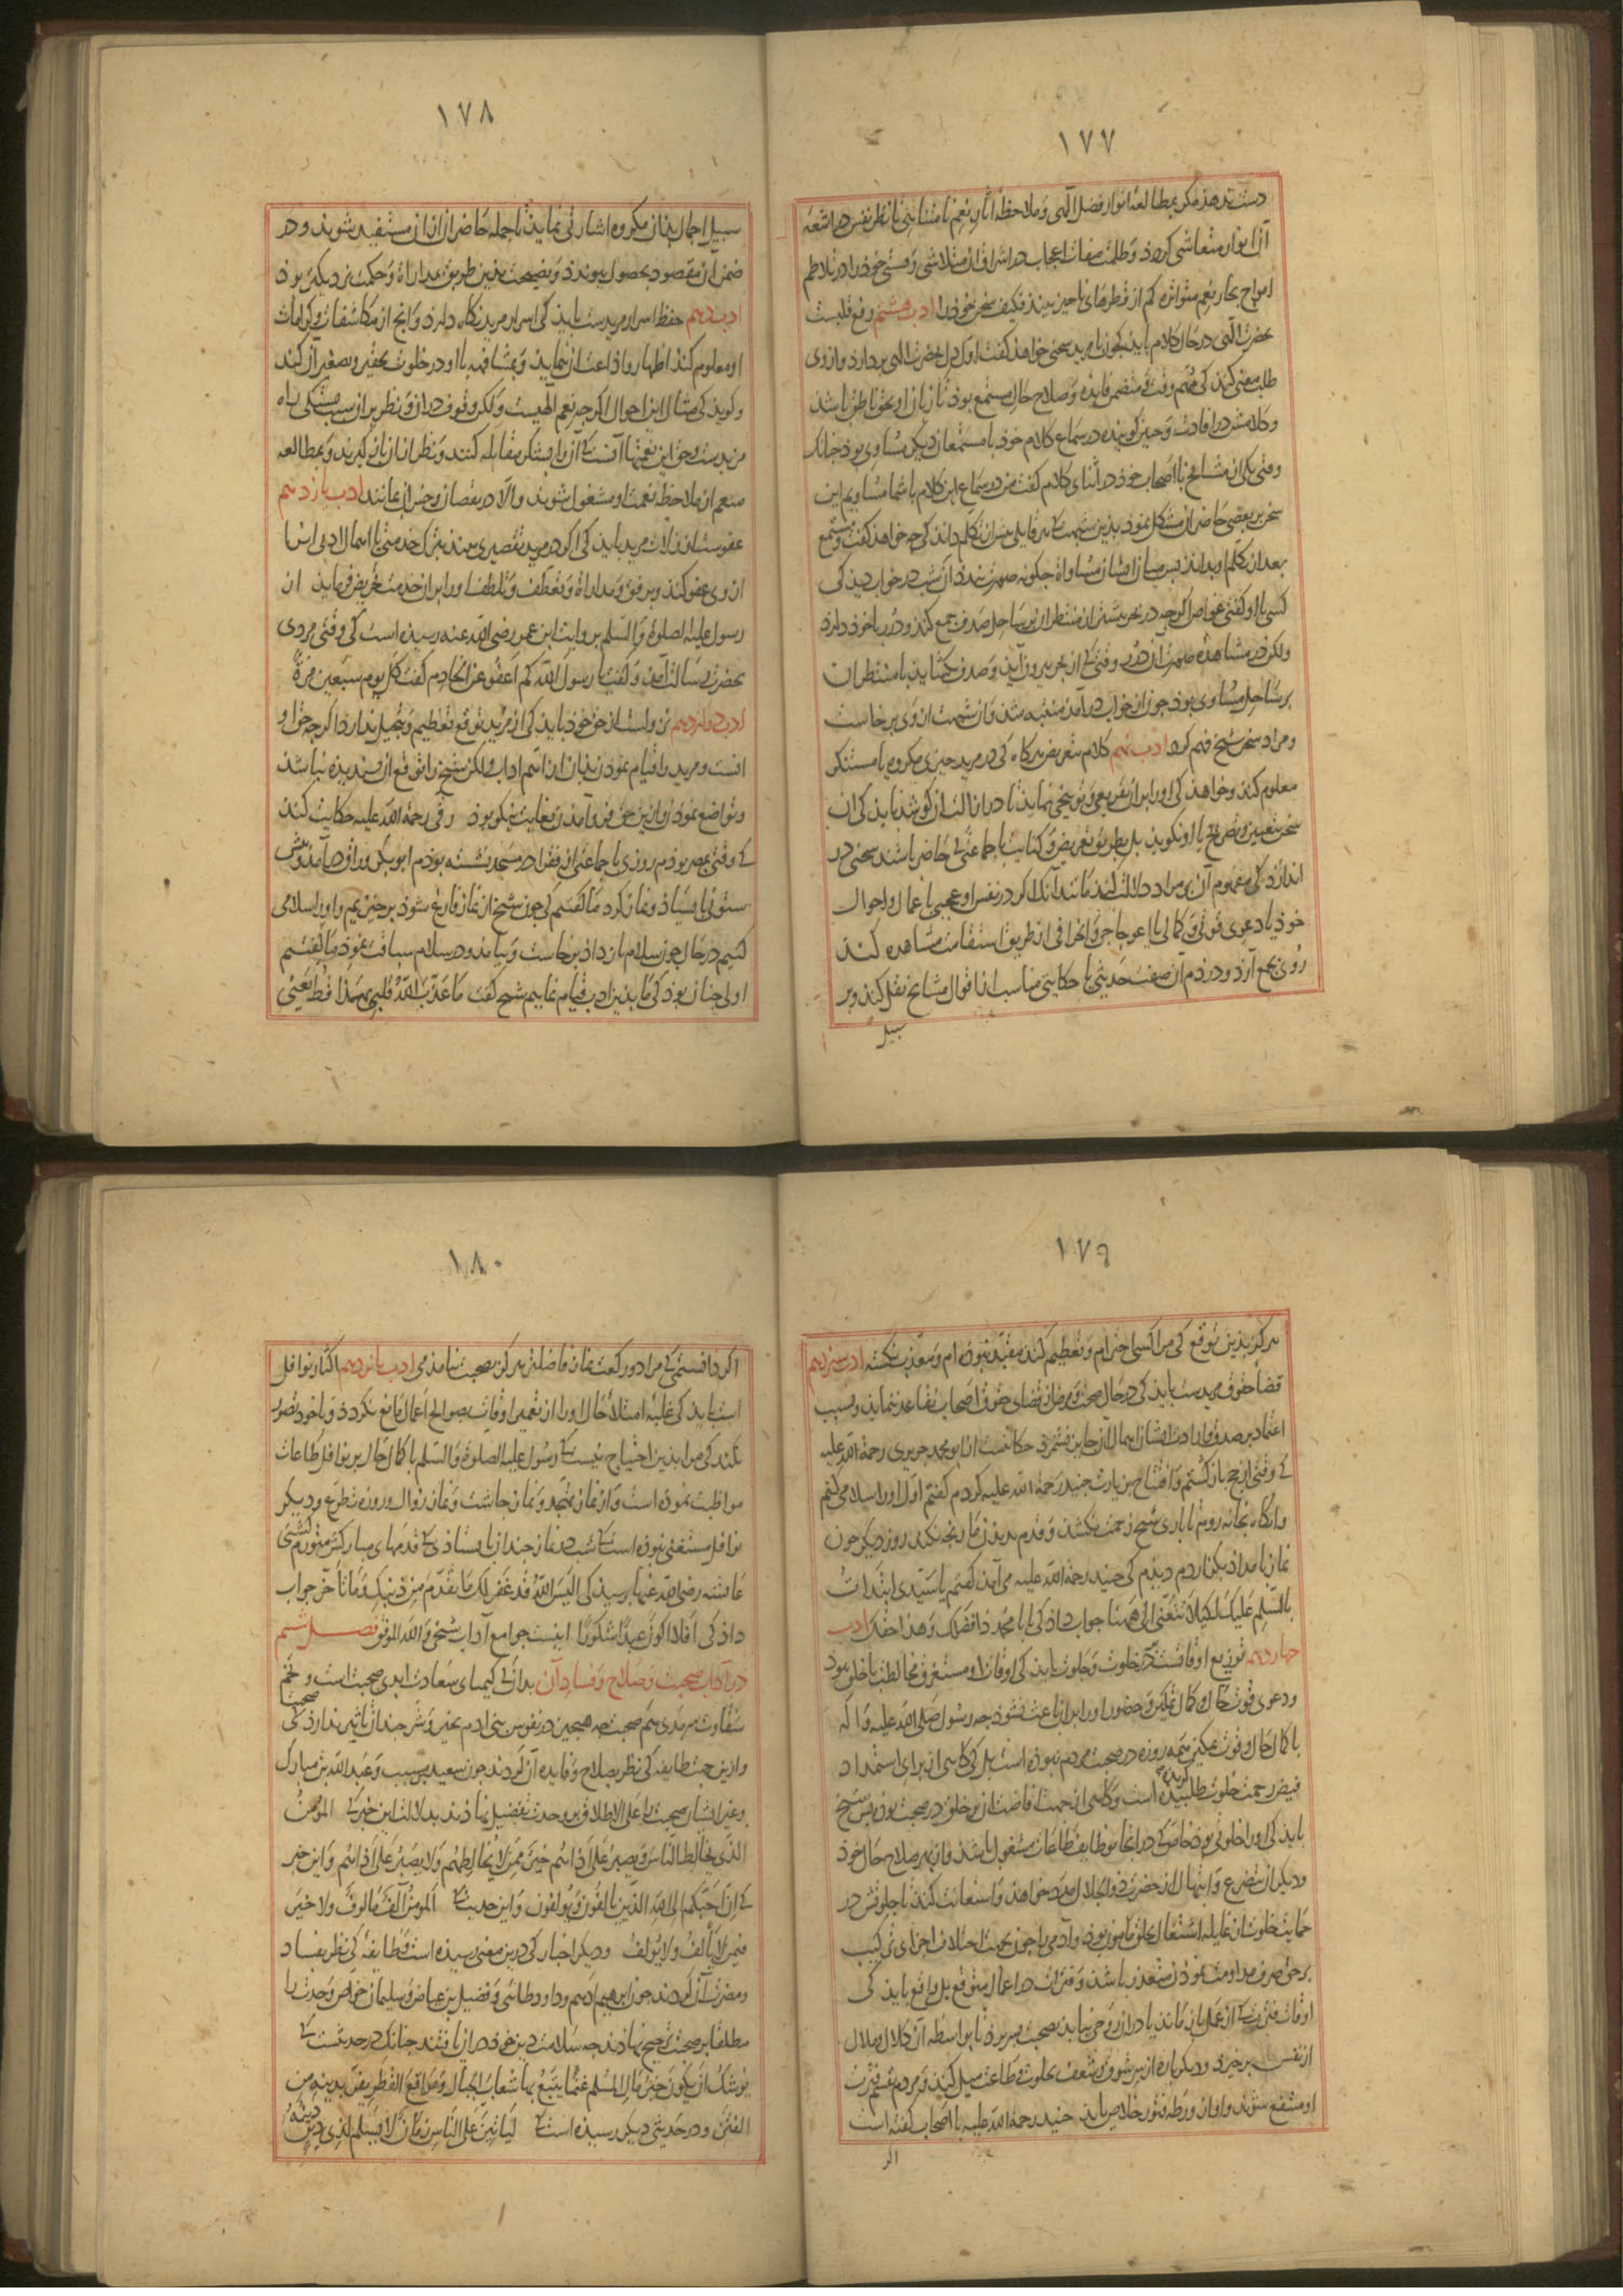 ١٧٧
دست ندهذ مکر بمطالعهٔ انوار فضل الهی و ملاحظهٔ اثار نعم نامتناهی تا نظر نفس در اشعهٔ
آن انوار متعاشی کردد و ظلمت صفات اعجاب در اشراق ان متلاشی و هستی خود را در تلاطم
امواج بحار نعم متواتره کم از قطره‌ای ناچیز بیند فکیف سخن خود را ادب هشتم رفع قلبست
بحضرت الهی در حال کلام باید کی چون با مرید سخنی خواهد کفت اول دل بحضرت الهی بردارد و از وی
طلب معنی کند کی مهم وقت و متضمن فایده و صلاح حال مستمع بوذ تا زبان او بحق ناطق باشد
و کلامش در افادت و حین کوینده در سماع کلام خود با مستمعان دیکر مساوی بود چنانک
وقتی یکی از مشایخ با اصحاب خود در اثنای کلام کفت من در سماع این کلام با شما مساویم این
سخن بر بعضی حاضران مشکل نمود بدین شبهت که هر قایلی پیش از تکلم داند کی چه خواهد کفت و مستمع
بعد از تکلم او بداند پس میان ایشان مساواة چکونه صورت بندد آن شب در خواب دید کی
کسی با او کفتی غواص اکرچه در بحر پیش از منتظران بر ساحل صدف جمع کند و دُرر با خود دارد
ولکن در مشاهدهٔ صورت آن دُرر وقتی کی از بحر بیرون آید و صدف بکشاید با منتظران
بر ساحل مساوی بود چون از خواب درآمد منتبه شد و از شبهت ان وی برخاست
و مراد سخن شیخ فهم کرد ادب نهم کلام بتعریض هر کاه کی در مرید چیزی مکروه یا مستنکر
معلوم کند و خواهد کی او را بر ان تقریعی و توبیخی نماید تا در ازالت ان کوشد باید کی ان
سخن بتعیین و تصریح با او نکوید بل بطریق تعریض و کنایت با جماعتی کی حاضر باشند سخنی در
اندازد کی مفهوم آن بر مراد دلالت کند مانند آنک اکر در نفس او عجبی باعمال و احوال
خود یا دعوی قوتی و کمالی یا اعوجاجی و انحرافی از طریق استقامت مشاهده کند
روی بجمع آرد و در ذم آن صفت حدیثی یا حکایتی مناسب از اقوال مشایخ نقل کند و بر
سبیل
١٧٨
سبیل اجمال بدان مکروه اشارتی نماید تا جمله حاضران ازان مستفید شوند و در
ضمن آن مقصود بحصول پیوندد و نصیحت بدین طریق بمداراة و حکمت نزدیکتر بود
ادب دهم حفظ اسرار مریدست باید کی اسرار مرید نکاه دارد و انچ از مکاشفات و کرامات
او معلوم کند اظهار و اذاعت ان ننماید و بمشافهه با او در خلوت بتحقیر و تصغیر ان کند
و کوید کی مثال این احوال اکرچه نعم الهیست ولکن وقوف در ان و نظر بر ان سبب سد راه
مزیدست و حق این نعمتها آنست کی آن را بشکر مقابله کنند و نظر از ان بازکیرند و بمطالعه
منعم از ملاحظهٔ نعمت او مشغول شوند والا در نقصان و خسران بمانند ادب یازدهم
عفوست از زلات مرید باید کی اکر در مرید تقصیری بیند بترک خدمتی یا اهمال ادبی انرا
از وی عفو کند و برفق و مداراة و تعطف و تلطف او را بر ان خدمت تحریض فرماید از
رسول علیه الصلوة والسلم بروایت ابن عمر رضی الله عنه رسیده است کی وقتی مردی
بحضرت رسالت آمد و کفت یا رسول الله کم اعفو عن الخادم کفت کل یوم سبعین مرة
ادب دوازدهم نزولست از حق خود باید کی از مرید توقع تعظیم و تبجیل ندارد اکرچه حق او
انست و مرید را قیام نمودن بدان از اهم اداب ولکن شیخ را توقع ان پسندیده نباشد
و تواضع نمودن و از ین حق فرو آمدن بغایت نیکو بود رقی رحمة الله علیه حکایت کند
کی وقتی بمصر بودم روزی با جماعتی از فقرا در مسجد نشسته بودم ابوبکر وراق درآمد و پیش
ستونی بایستاد و نماز کرد ما کفتیم کی چون شیخ از نماز فارغ شود برخیزیم و او را سلامی
کنیم در حال چون سلام باز داد برخاست و بیامد و در سلام سبقت نمود ما کفتیم
اولی چنان بود کی ما بدین ادب قیام نماییم شیخ کفت ما عذب الله قلبی بهذا قط یعنی
١٧٩
هرکز بدین توقع کی مرا کسی احترام و تعظیم کند مقید نبوده ام و معذب نکشته ادب سیزدهم
قضا حقوق مریدست باید کی در حال صحت و مرض از قضای حقوق اصحاب تقاعد ننماید و بسبب
اعتماد بر صدق ارادت ایشان اهمال ان جایز نشمرد حکایتست از ابو محمد جریری رحمة الله علیه
کی وقتی از حج بازکشتم و افتتاح بزیارت جنید رحمة الله علیه کردم کفتم اول او را سلامی کنم
وانکاه بخانه روم تا باری شیخ زحمت نکشد و قدم بدیدن ما رنجه نکند روز دیکر چون
نماز بامداد بکزاردم دیدم کی جنید رحمة الله علیه می آمد کفتم یا سیدی ابتدات
بالسلم علیک لکیلا تتعنی الی ههنا جواب داد کی یا با محمد ذا فضلک وهذا حقک ادب
چهاردهم توزیع اوقاتست بر خلوت و جلوت باید کی اوقات او مستغرق مخالطت با خلق نبود
و دعوی قوت حال و کمال تمکین و حضور او را بر ان باعث نشود چه رسول صلی الله علیه و اله
با کمال حال و قوت تمکین همه روزه در صحبت مردم نبوده است بل کی کاهی از برای استمداد
فیض رحمت خلوت طلبیده است و کاهی از جهت افاضت ان بر خلق در صحبت بوده پس شیخ
باید کی او را خلوتی بود خاص کی در انجا بوظایف طاعات مشغول باشد و از بهر صلاح حال خود
و دیکران بتضرع و ابتهال از حضرت ذوالجلال مدد خواهد و استعانت کند تا جلوتش در
حمایت خلوت از غایلهٔ اشتغال بخلق مامون بود و آدمی را چون بجهت اختلاف اجزای ترکیب
بر حق صرف مداومت نمودن متعذر باشد و فترات در اعمال متوقع بل واقع باید کی
اوقات فترت کی از عمل بازماند یا در ان روحی نیابد بصحبت بسر برد تا بواسطه آن کلال و ملال
از نفس برخیزد و دیکر باره از سر شوق و شعف بخلوت و طاعت میل کند و مردم بقسم فترت
او منتفع شوند و او از ورطه فتور خلاص یابد جنید رحمة الله علیه با اصحاب کفته است
اکر
١٨٠
اکر دانستمی کی مرا دو رکعت نماز فاضلتر هرکز بصحبت نیامدمی ادب پانزدهم اکثار نوافل
است باید کی غلبه امتلاء حال او را از تعمیر اوقات بصوالح اعمال مانع نکردد و با خود تصور
نکند کی مرا بدین احتیاج نیست کی رسول علیه الصلوة والسلم با کمال حال بر نوافل طاعات
مواظبت نموده است و از نماز تهجد و نماز چاشت و نماز زوال و روزه تطوع و دیکر
نوافل مستغنی نبوده است کی شب در نماز چندان بایستادی کی قدمهای مبارکش متورم کشتی
عایشه رضی الله عنها پرسید کی الیس الله قد غفر لک ما تقدم من ذنبک وما تأخر جواب
داد کی افلا اکون عبدا شکورا اینست جوامع آداب شیخی والله الموفق فصل ششم
در آداب صحبت و صلاح و فساد آن بدان کی کیمیای سعادت ابدی صحبت است و تخم
شقاوت سرمدی هم صحبت چه هیچ چیز در نفوس بنی ادم بخیر و شر چندان تاثیر ندارد کی صحبت
وازین جهت طایفه کی نظر بصلاح و فایده آن کردند چون سعید مسیب و عبد الله بن مبارک
و غیر ایشان صحبت را علی الاطلاق بر وحدت تفضیل نهادند بدلالت این خبر کی المؤمن
الذی یخالط الناس ویصبر علی اذائهم خیر ممن لا یخالطهم ولا یصبر علی اذائهم و این خبر
کی ان احبکم الی الله الذین یألفون ویؤلفون و این حدیث کی المؤمن آلف مألوف ولا خیر
فیمن لا یألف ولا یؤلف و دیکر اخبار کی درین معنی رسیده است و طایفه کی نظر بفساد
و مضرت آن کردند چون ابرهیم ادهم و داود طائی و فضیل بن عیاض و سلیمان خواص وحدت را
مطلقا بر صحبت ترجیح نهادند چه سلامت دین خود در ان یافتند چنانک در حدیثست کی
یوشک ان یکون خیر مال المسلم غنما یتبع بها شعاب الجبال ومواقع القطر یفر بدینه من
الفتن و در حدیثی دیکر رسیده است کی لیأتین علی الناس زمان لا یسلم لذی دین دینه